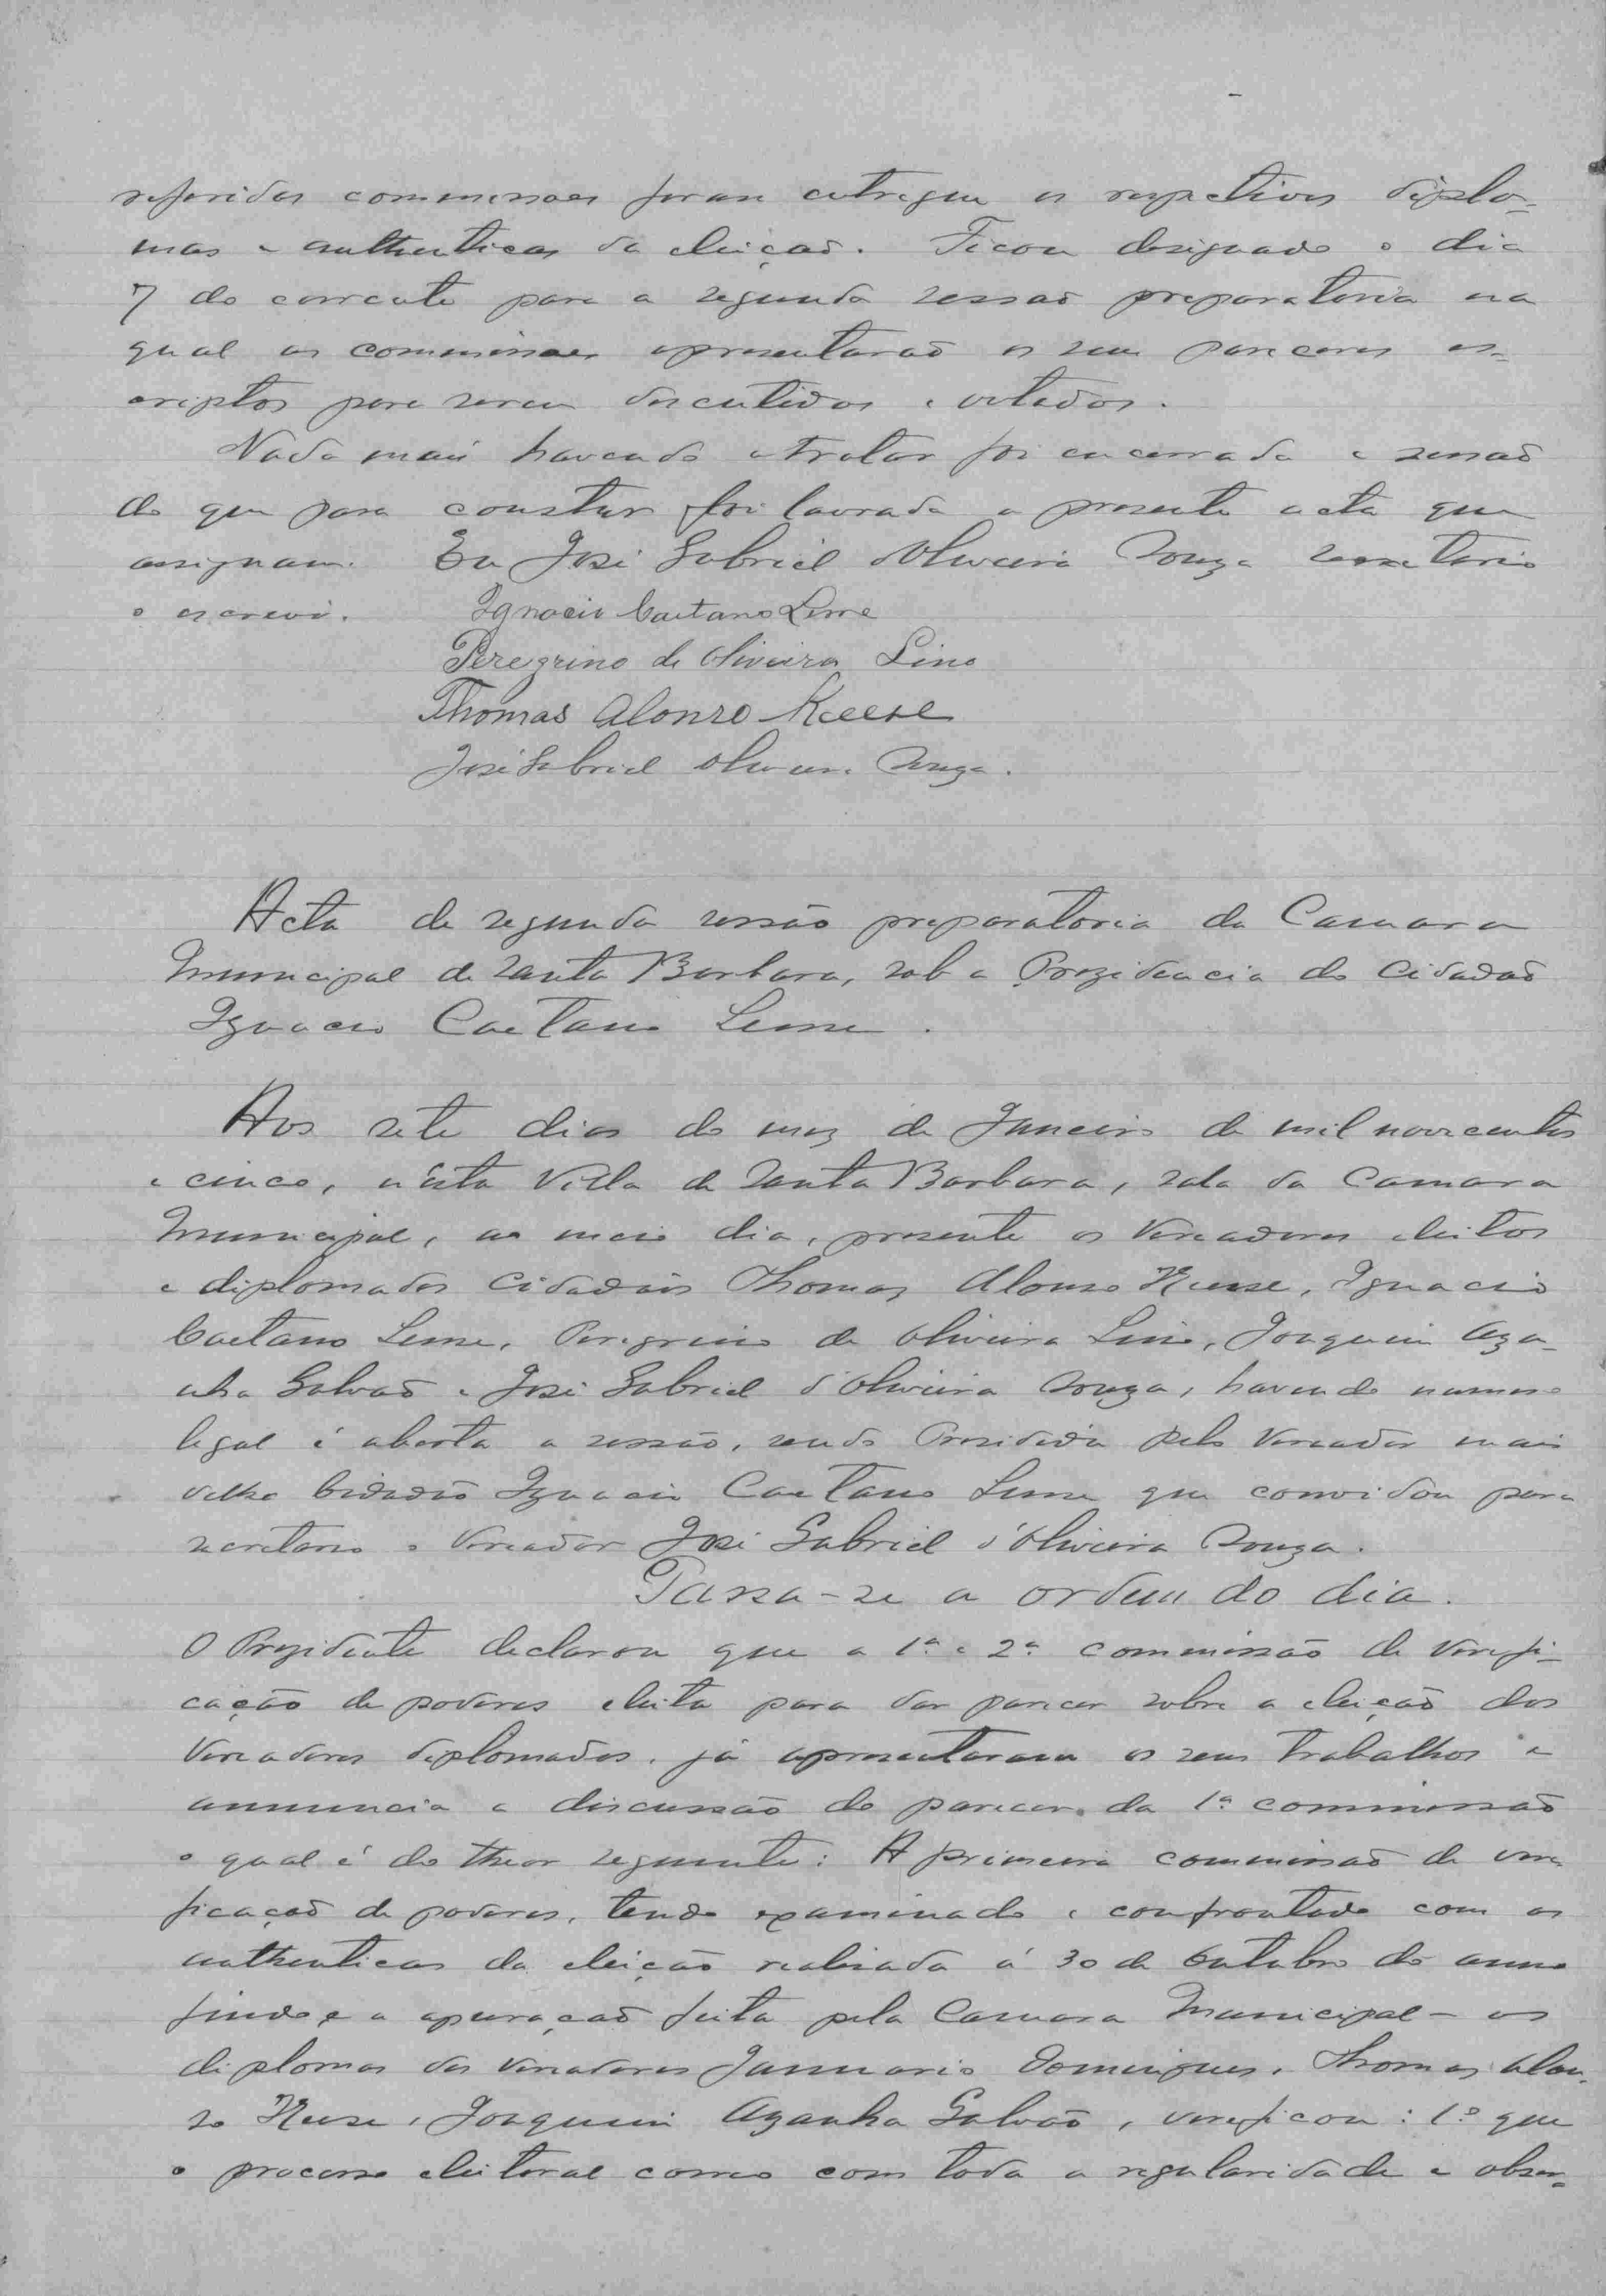 referidas commissoes foram entregue os respectivos diplo-
mas e authenticas da eleição. Ficou designado o dia
7 do corrente para a segunda sessaõ preparatoria na
qual as commissoes apresentaraõ os seus pareceres es-
criptos para serem discutidos e votados.
Nada mais havendo a tratar foi encerrada a sessaõ
do que para constar foi lavrada a presente acta que
assignam. Eu José Gabriel d'Oliveira Souza secretario
o escrevi. Ignacio Caetano Leme
Peregrino de Oliveira Lino
Thomas Alonzo Keese
José Gabriel Oliveira Souza.
Acta de segunda sessão preparatoria da Camara
Municipal de Santa Barbara, sob a Prezidencia do Cidadaõ
Ignacio Caetano Leme.
Aos sete dias do mez de Janeiro de mil novecentos
e cinco, n'ésta Villa de Santa Barbara, sala da Camara
Municipal, ao meio dia, presente os Vereadores eleitos
e diplomados Cidadãos Thomas Alonso Keese, Ignacio
Caetano Leme, Peregrino de Oliveira Lino, Joaquim Aza-
nha Galvaõ e José Gabriel d'Oliveira Souza, havendo numero
legal é aberta a sessão, sendo Presidida pelo Vereador mais
velho Cidadão Ignacio Caetano Leme que convidou para
secretario o Vereador José Gabriel d'Oliveira Souza.
Passa-se a ordem do dia.
O Prezidente declarou que a 1ª e 2ª commissão de Verifi-
cação de poderes eleita para dar parecer sobre a eleição dos
Vereadores diplomados, já apresentaram os seus trabalhos e
annuncia a discussão do parecer da 1ª commissaõ
o qual é do theor seguinte: A primeira commissaõ de veri-
ficaçaõ de poderes, tendo examinado e confrontado com as
authenticas da eleição realisada á 30 de Outubro do anno
findo e a apuraçaõ feita pela Camara Municipal - os
diplomas dos vereadores Januario Domingues, Thomas Alon-
so Keese, Joaquim Azanha Galvão, verificou: 1º que
o processo eleitoral correo com toda a regularidade e obser-